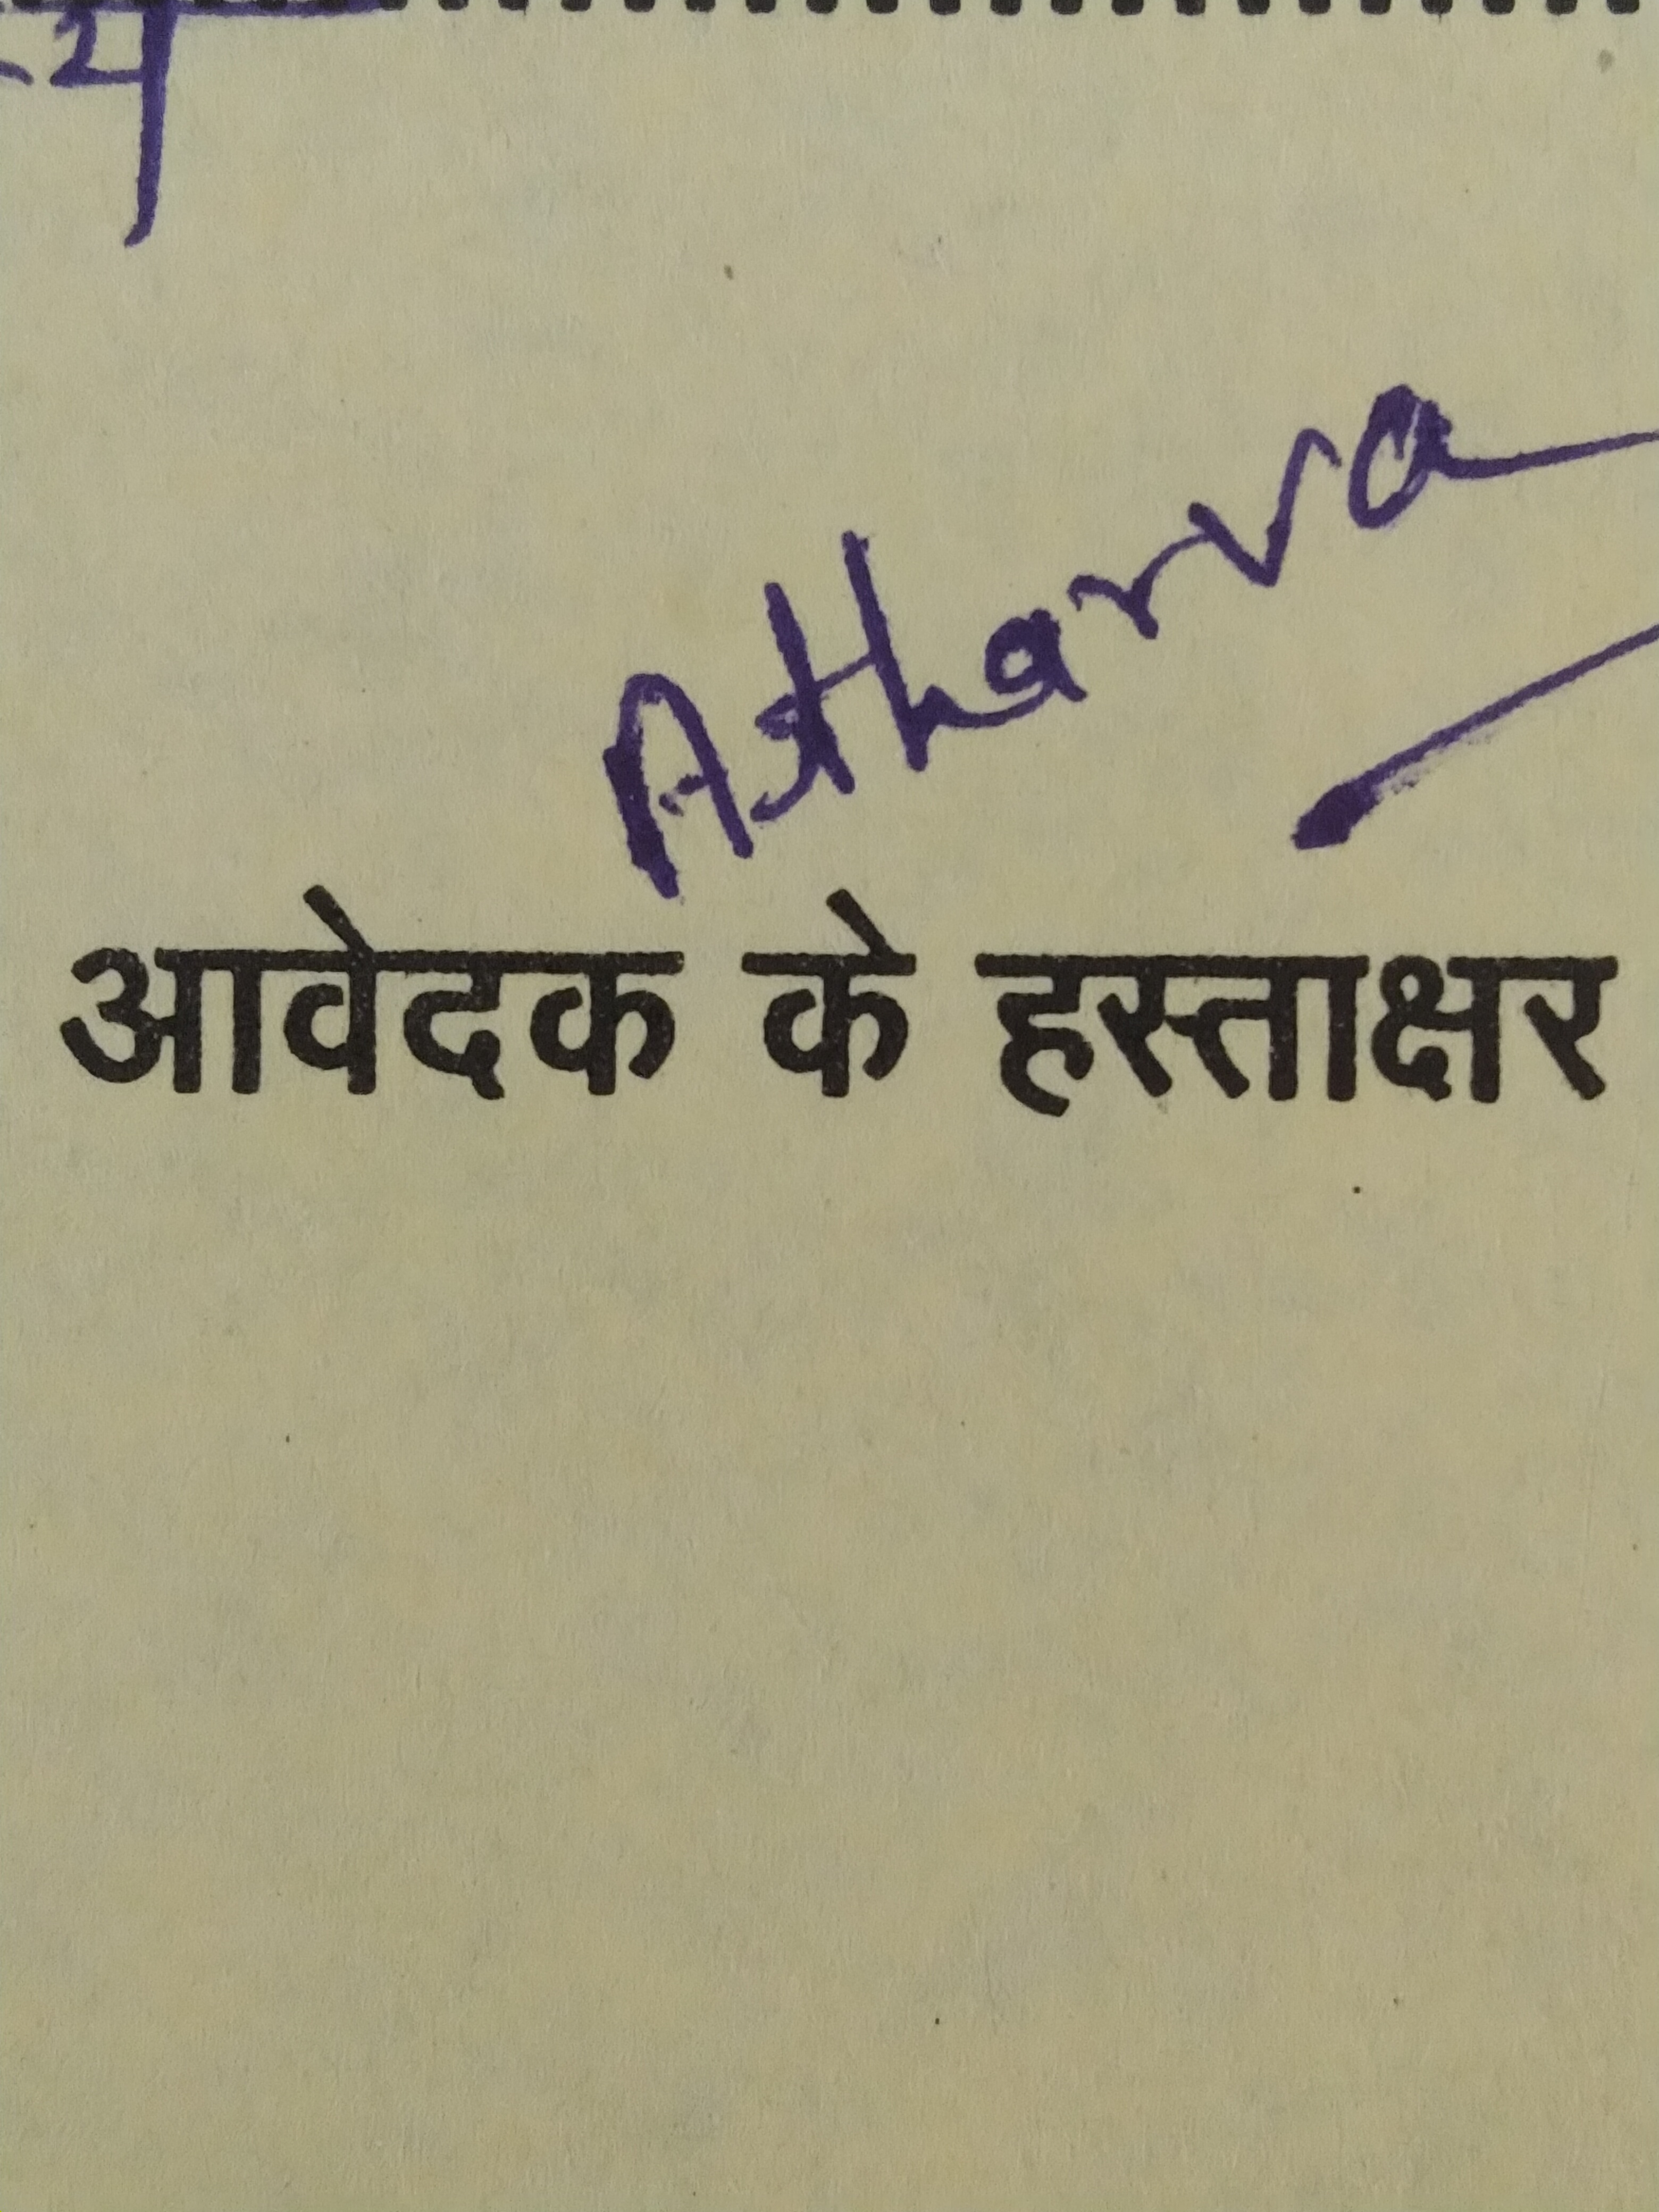 Atharva
आवेदक के हस्ताक्षर